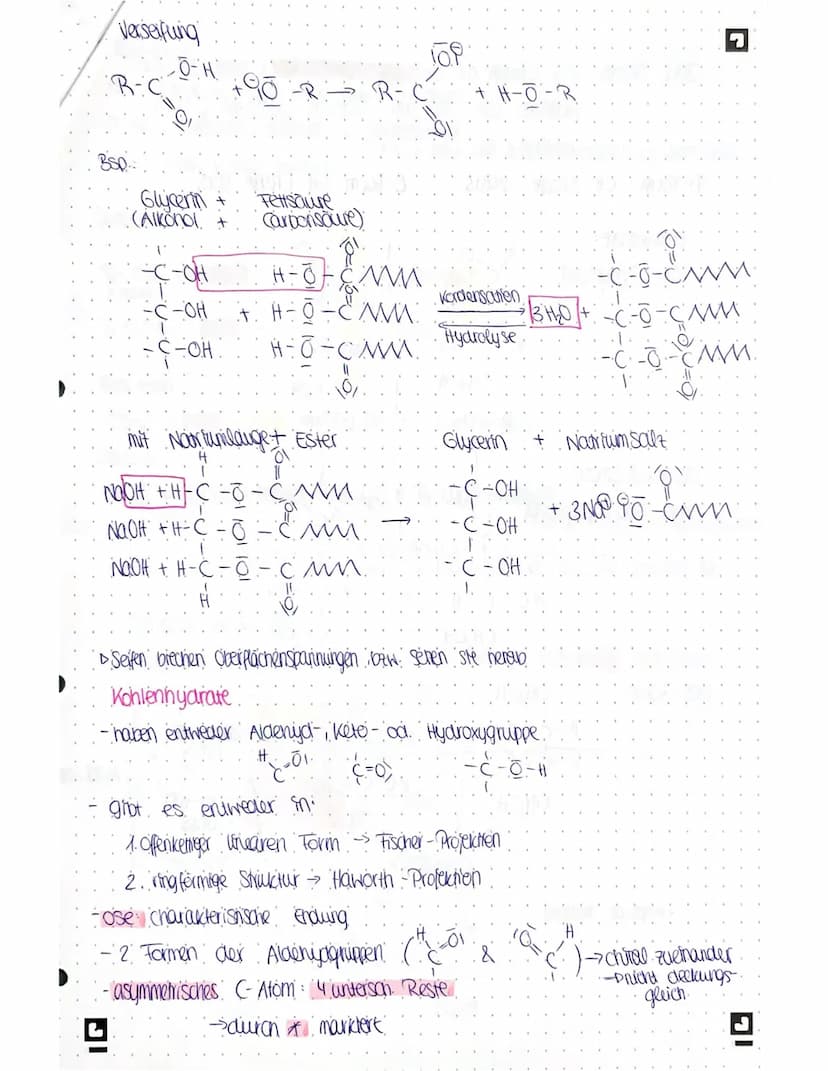 Verseifung
R-C -O̅-H + ⊖|O̅ -R → R-C |O̅|⊖ + H-O̅-R
O O
Bsp.:
Glycerin + Fettsäure
(Alkohol + Carbonsäure)
-C-OH H-O̅-C -C-O̅-C
-C-OH + H-O̅-C Kondensation 3 H₂O + -C-O̅-C
-C-OH H-O̅-C Hydrolyse -C-O̅-C
mit Natriumlauge + Ester Glycerin + Natriumsalz
H
NaOH + H-C-O̅-C -C-OH
NaOH + H-C-O̅-C → -C-OH + 3Na⊕ ⊖|O̅-C
NaOH + H-C-O̅-C -C-OH
H
▷ Seifen brechen Oberflächenspannungen bzw. setzen sie herab
Kohlenhydrate
- haben entweder Aldehyd-, Keto- od. Hydroxygruppe
H C=O C=O -C-O̅-H
- gibt es entweder in:
1. Offenkettiger linearen Form → Fischer-Projektion
2. ringförmige Struktur → Haworth-Projektion
-ose: charakteristische Endung
- 2 Formen der Aldehydgruppen (H C=O & O=C H) → chiral zueinander
→ nicht deckungs-
gleich
- asymmetrisches C-Atom: 4 untersch. Reste
→ durch * markiert